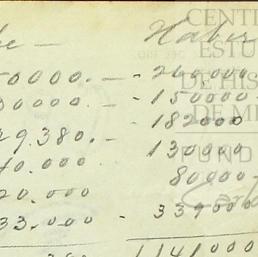 be — Haber
CENTR
ESTU
DE HIS
DE M
FUND
0000. — - 260000
0000. — - 150000
29.380. — 182000
0.000 130000
20.000 80000-
33.000 - 339000
1141000